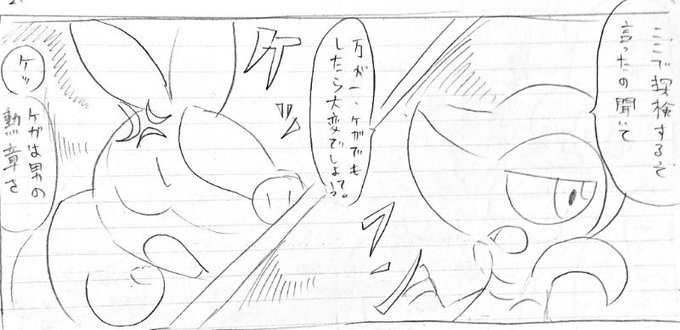 ここで探検するぞ
言ったの聞いて
万が一、ケガでも
したら大変でしょって。
フン
ケッ
ケッ
ケガは男の
勲章さ